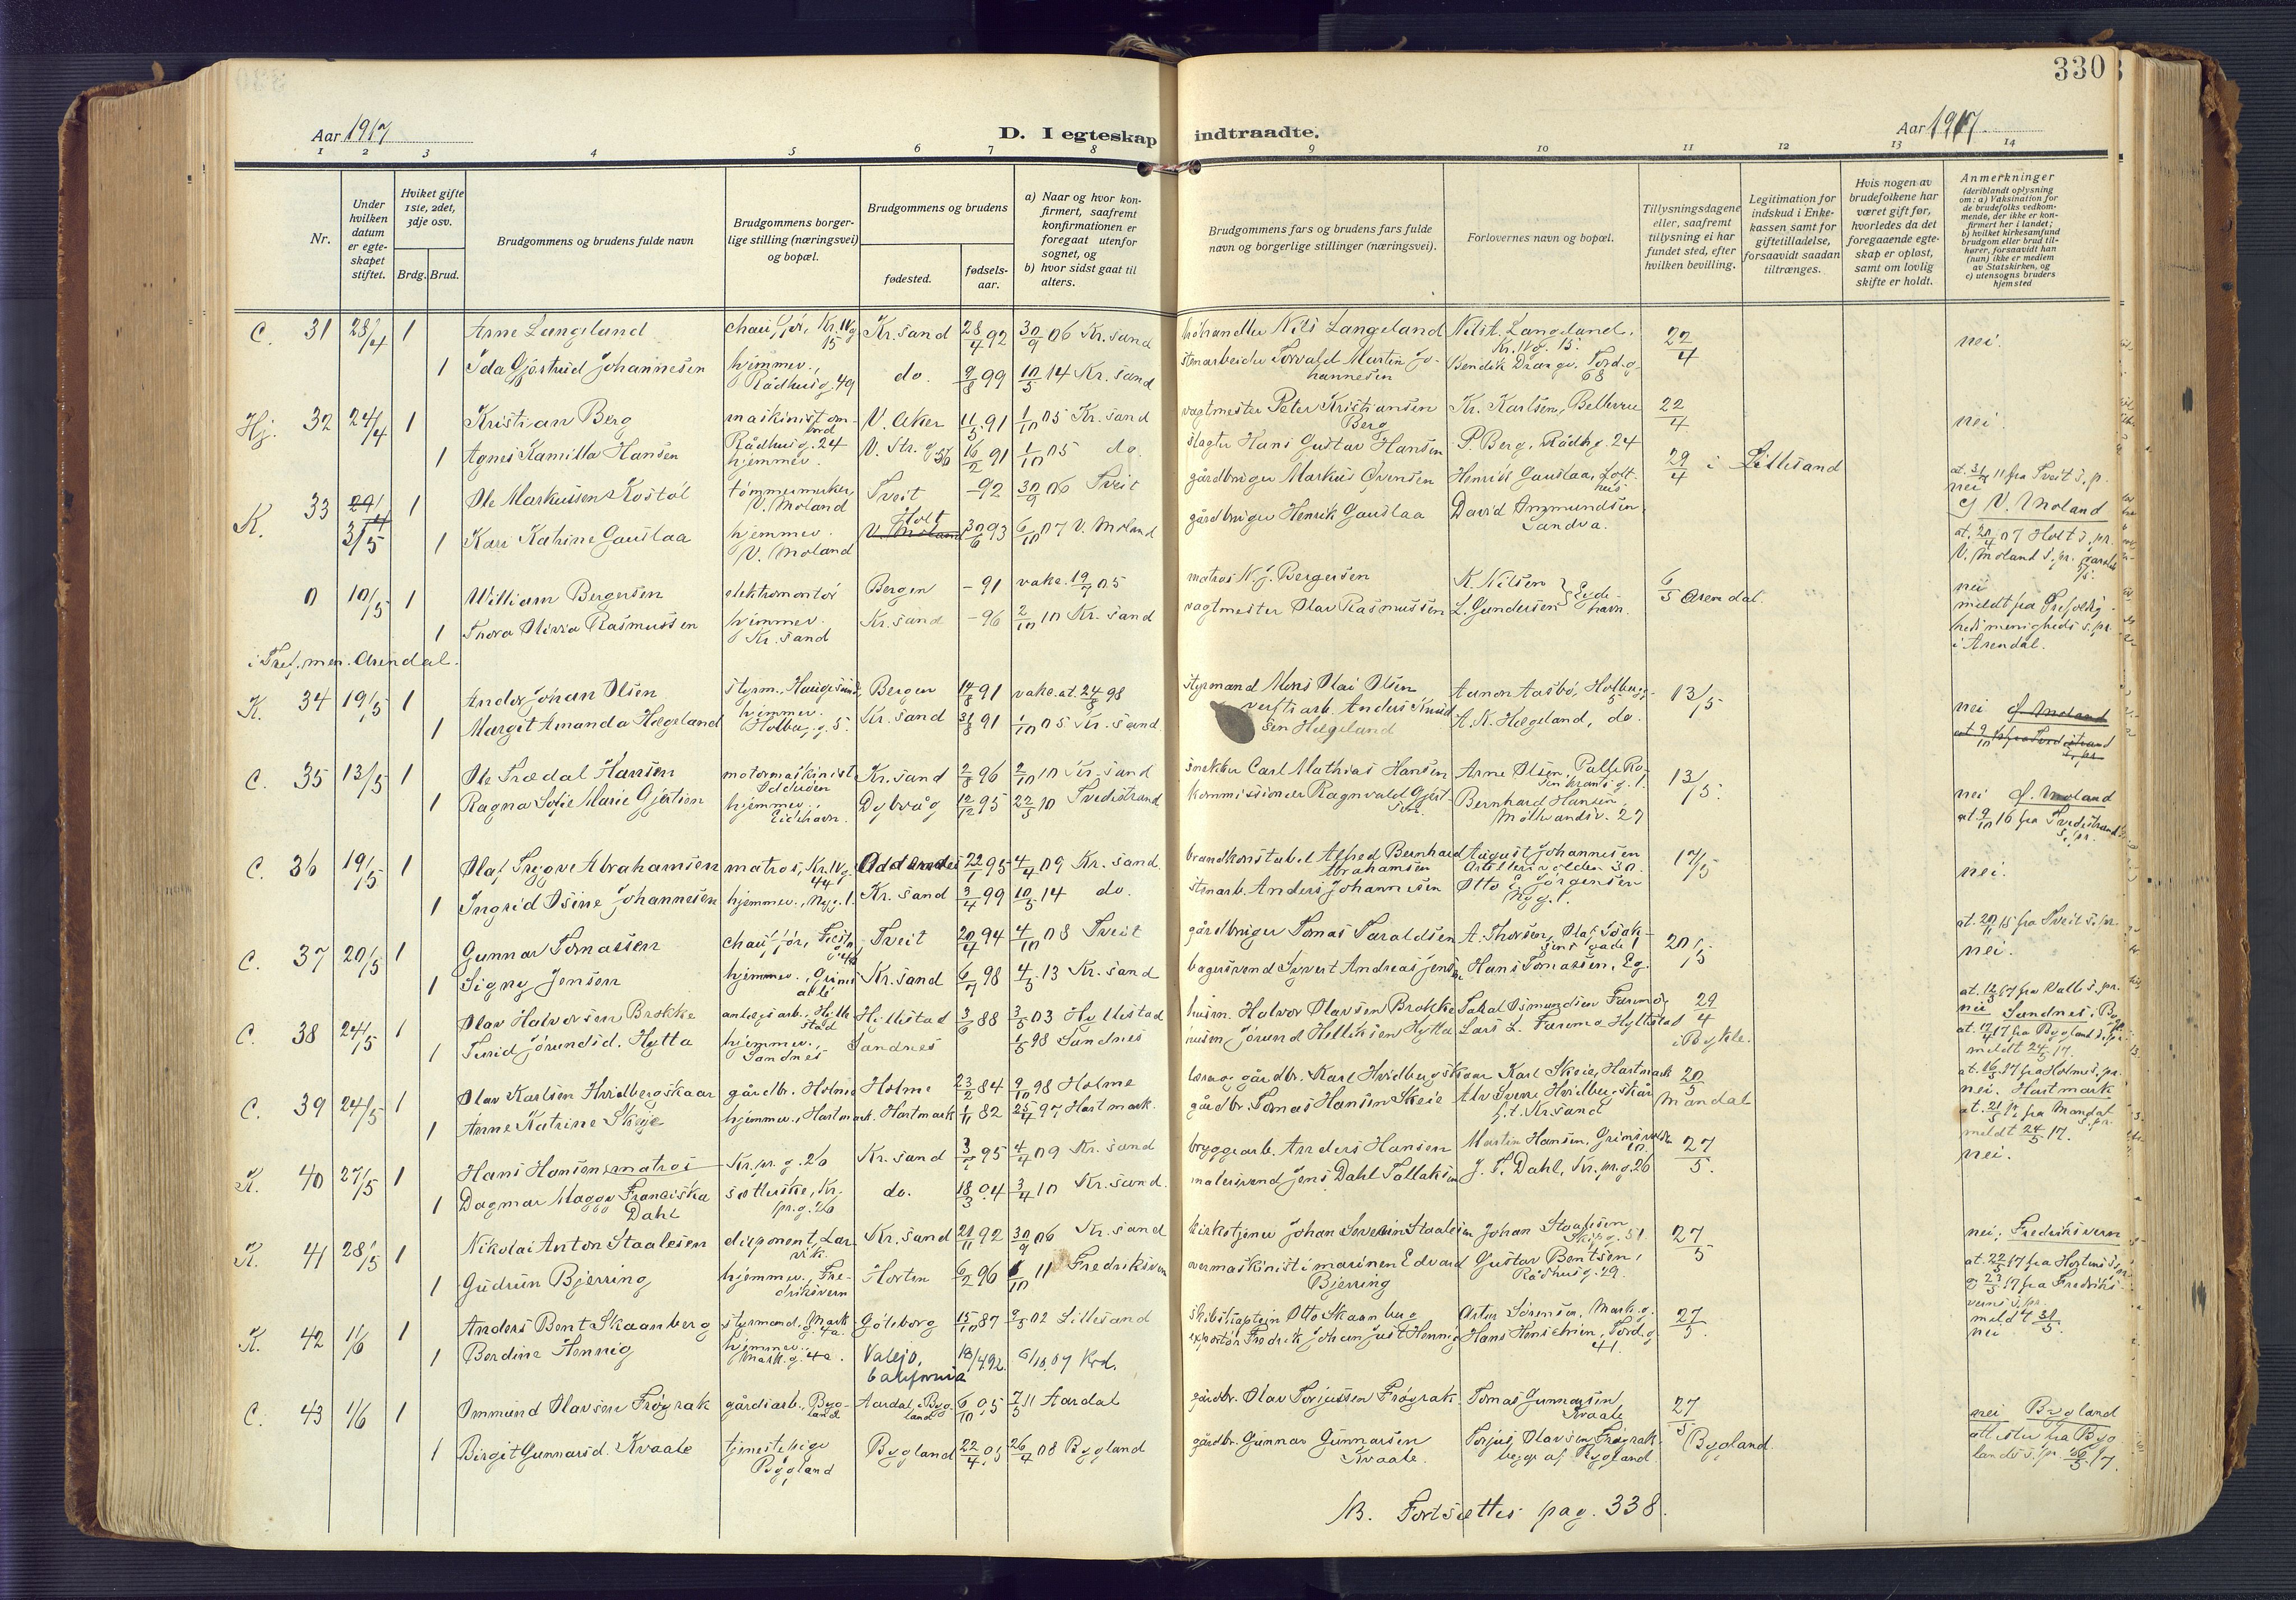 330
Aar 1917
D. I egteskap indtraadte.
Aar 1917.
1 2 3 4 5 6 7 8 9 10 11 12 13 14
Nr.
Under hvilken datum er egteskapet stiftet.
Hviket gifte 1ste, 2det, 3dje osv.
Brdg. Brud.
Brudgommens og brudens fulde navn
Brudgommens borgerlige stilling (næringsvei) og bopæl.
Brudgommens og brudens
fødested.
fødselsaar.
a) Naar og hvor konfirmert, saafremt konfirmationen er foregaat utenfor sognet, og
b) hvor sidst gaat til alters.
Brudgommens fars og brudens fars fulde navn og borgerlige stillinger (næringsvei).
Forlovernes navn og bopæl.
Tillysningsdagene eller, saafremt tillysning ei har fundet sted, efter hvilken bevilling.
Legitimation for indskud i Enkekassen samt for giftetilladelse, forsaavidt saadan tiltrænges.
Hvis nogen av brudefolkene har været gift før, hvorledes da det foregaaende egteskap er opløst, samt om lovlig skifte er holdt.
Anmerkninger
(deriblandt oplysning om: a) Vaksination for de brudefolks vedkommende, der ikke er konfirmert her i landet; b) hvilket kirkesamfund brudgom eller brud tilhører, forsaavidt han (hun) ikke er medlem av Statskirken, og c) utensogns bruders hjemsted
C. 31 28/4 1 Arne Langeland chauffør, Kr. IVg. 15 Kr.sand 28/4 92 30/9 06 Kr.sand Nils Langeland Nils A. Langeland, Kr. IVg. 15. 22/4 nei.
1 Ida Gjøstrud Johannesen hjemmev., Rådhusg. 49 do. 9/8 99 10/5 14 Kr.sand stenarbeider Torvald Martin Johannesen Bendik Drange, Tord.g. 68
Hj. 32 24/4 1 Kristian Berg maskinist ombord Rådhusg. 24 V. Aker 11/5 91 1/10 05 Kr.sand vagtmester Peter Kristiansen Berg Kr. Karlsen, Bellevue 22/4 nei.
1 Agnes Kamilla Hansen hjemmev. V. Str. g 36 16/2 91 1/10 05 do. slagter Hans Gustav Hansen P. Berg, Rådhg. 24
K. 33 24/4 3/5 1 Ole Markussen Kostøl tømmermerker V. Moland Tveit -92 30/9 06 Tveit gårdbruger Markus Øvensen Henrik Gauslaa, Holt 29/4 i Lillesand at. 3/4 11 fra Tveit s.pr. nei
1 Kari Katrine Gauslaa hjemmev. V. Moland V. Moland Holt 30/6 93 6/10 07 V. Moland gårdbruger Henrik Gauslaa David Ommundsen, Sandva. cj V. Moland at. 20/4 07 Holt s.pr. V. Moland s.pr.
0 10/5 1 William Bergersen elektromontør Bergen -91 vakc. 19/7 05 matros N. J. Bergersen K. Nilsen 6/5 Arendal. nei
1 Thora Olivia Rasmussen hjemmev. Kr.sand Kr.sand -96 2/10 10 Kr.sand vagtmester Olav Rasmussen L. Gundersen } Eydehavn. meldt fra Trefoldighedsmenigheds s.pr. i Arendal.
i Tref. men. Arendal.
K. 34 19/5 1 Andor Johan Olsen styrm., Haugesund Bergen 14/8 91 vakc. at. 24/8 98 styrmand Mons Olai Olsen Aanon Aasbø, Holbergs. 5 13/5 nei Ø. Moland
1 Margit Amanda Hægeland hjemmev. Holbergs.g. 5. Kr.sand 31/8 91 1/10 05 Kr.sand verftsarb. Anders Knudsen Hægeland A. K. Hægeland, do.
C. 35 13/5 1 Ole Trædal Hansen motormaskinist Odderøen Kr.sand 2/8 96 2/10 10 Kr.sand snekker Carl Mathias Hansen Arne Olsen, Palle Rosenkrantzg. 1. 13/5. nei Ø. Moland
1 Ragna Sofie Marie Gjertsen hjemmev. Eidehavn. Dybvåg 12/12 95 22/5 10 Tvedestrand kommissionær Ragnvald Gjertsen. Bernhard Hansen, Møllevandsv. 27 at. 9/10 16 fra Tvedestrand s.pr.
C. 36 19/5 1 Olaf Trygve Abrahamsen matros, Kr. IVg. 44 Oddernes 22/1 95 4/4 09 Kr.sand brandkonstabel Alfred Bernhard Abrahamsen August Johannesen Artillerivolden 30. 17/5 nei.
1 Ingrid Osine Johannesen hjemmev., Nyg. 1. Kr.sand 3/4 99 10/5 14 do. stenarb. Anders Johannesen Otto E. Jørgensen Nyg. 1.
C. 37 20/5 1 Gunnar Tomassen chauffør, Tveit 20/4 94 4/10 08 Tveit gårdbruger Tomas Taraldsen A. Thorsen, 20/5 at. 20/11 15 fra Tveit s.pr. nei.
1 Signy Jensen hjemmev., Kr.sand 6/7 98 4/5 13 Kr.sand bagersvend Syvert Andreas Jensen Hans Tomassen, Eg.
C. 38 24/5 1 Olav Halvorsen Brokke anlægsarb., Hyllestad Hyllestad 3/6 88 3/5 03 Hyllestad husm. Halvor Olavsen Brokke 29/4 at. 12/5 17 fra Valle s.pr. nei Sandnes i Bygl.
1 Turid Jørundsd. Hytta hjemmev., Sandnes Sandnes 1/5 98 Sandnes husm Jørund Helliksen Hytta Lars L. Furemo Hyllestad i Bykle. at. 17/4 17 fra Bygland s.pr. meldt 24/5 17.
C. 39 24/5 1 Olav Karlsen Hvidbergskaar gårdbr. Holme Holme 23/2 84 9/10 98 Holme lærer og gårdbr. Karl Hvidbergskaar Karl Skeie, Hartmark 20/5 Mandal at. 16/5 17 fra Holme s.pr. nei. Hartmark
1 Anne Katrine Skeie hjemmev., Hartmark. Hartmark 1/11 82 25/4 97 Hartmark. gårdbr. Tomas Hansen Skeie Alv Sverre Hvidbergskår f.t. Kr.sand at. 21/5 17 fra Mandal s.pr. meldt 24/5 17.
K. 40 27/5 1 Hans Hansen, matros Kr. pr. g. 26 Kr.sand 3/1 95 4/4 09 Kr.sand bryggearb. Anders Hansen Martin Hansen, 27/5. nei.
1 Dagmar Magga Franciska Dahl Kr. pr. g. 26 do. 18/3 04 3/4 10 Kr.sand. malersvend Jens Dahl Tallaksen J. T. Dahl, Kr. pr. g. 26
K. 41 28/5 1 Nikolai Anton Staalesen disponent, Larvik. Kr.sand 21/11 92 30/9 06 Kr.sand kirketjener Johan Severin Staalesen Johan Staalesen Skipg. 51 27/5 nei, Fredriksvern
1 Gudrun Bjerring hjemmev., Fredriksvern Horten 6/2 96 /10 11 Fredriksvern overmaskinist i marinen Edvard Bjerring Gustav Bentsen, Rådhusg. 29. at. 22/5 17 fra Hortens s.pr. og 23/5 17 fra Fredriksverns s.pr. meldt 31/5.
K. 42 1/6 1 Anders Bent Skaanberg styrmand, Mark.g. 4a. Gøteborg 15/10 87 9/5 02 Lillesand skibskaptein Otto Skaanberg Sørensen, Mark.g. 27/5. nei
1 Berdine Hennig hjemmev. Mark.g. 4a. Valejo, California 18/4 92. 6/10.07 Krd. exportør Fredrik Johan Just Hennig Hans Henschien, Tord.g. 41.
C. 43 1/6 1 Ommund Olavsen Frøyrak gårdsarb., Bygland Aardal, Bygland 6/10 05 7/5 11 Aardal gårdbr. Olav Torjussen Frøyrak Tomas Gunnarsen, Kvaale 27/5 Bygland nei Bygland
1 Birgit Gunnarsd. Kvaale tjenestepige Bygland Bygland 22/4 05 26/4 08 Bygland gårdbr. Gunnar Gunnarsen Kvaale. Torjus Olavsen Frøyrak begge af Bygland. attester fra Byglands s.pr. 26/5 17.
NB. Fortsættes pag. 338.